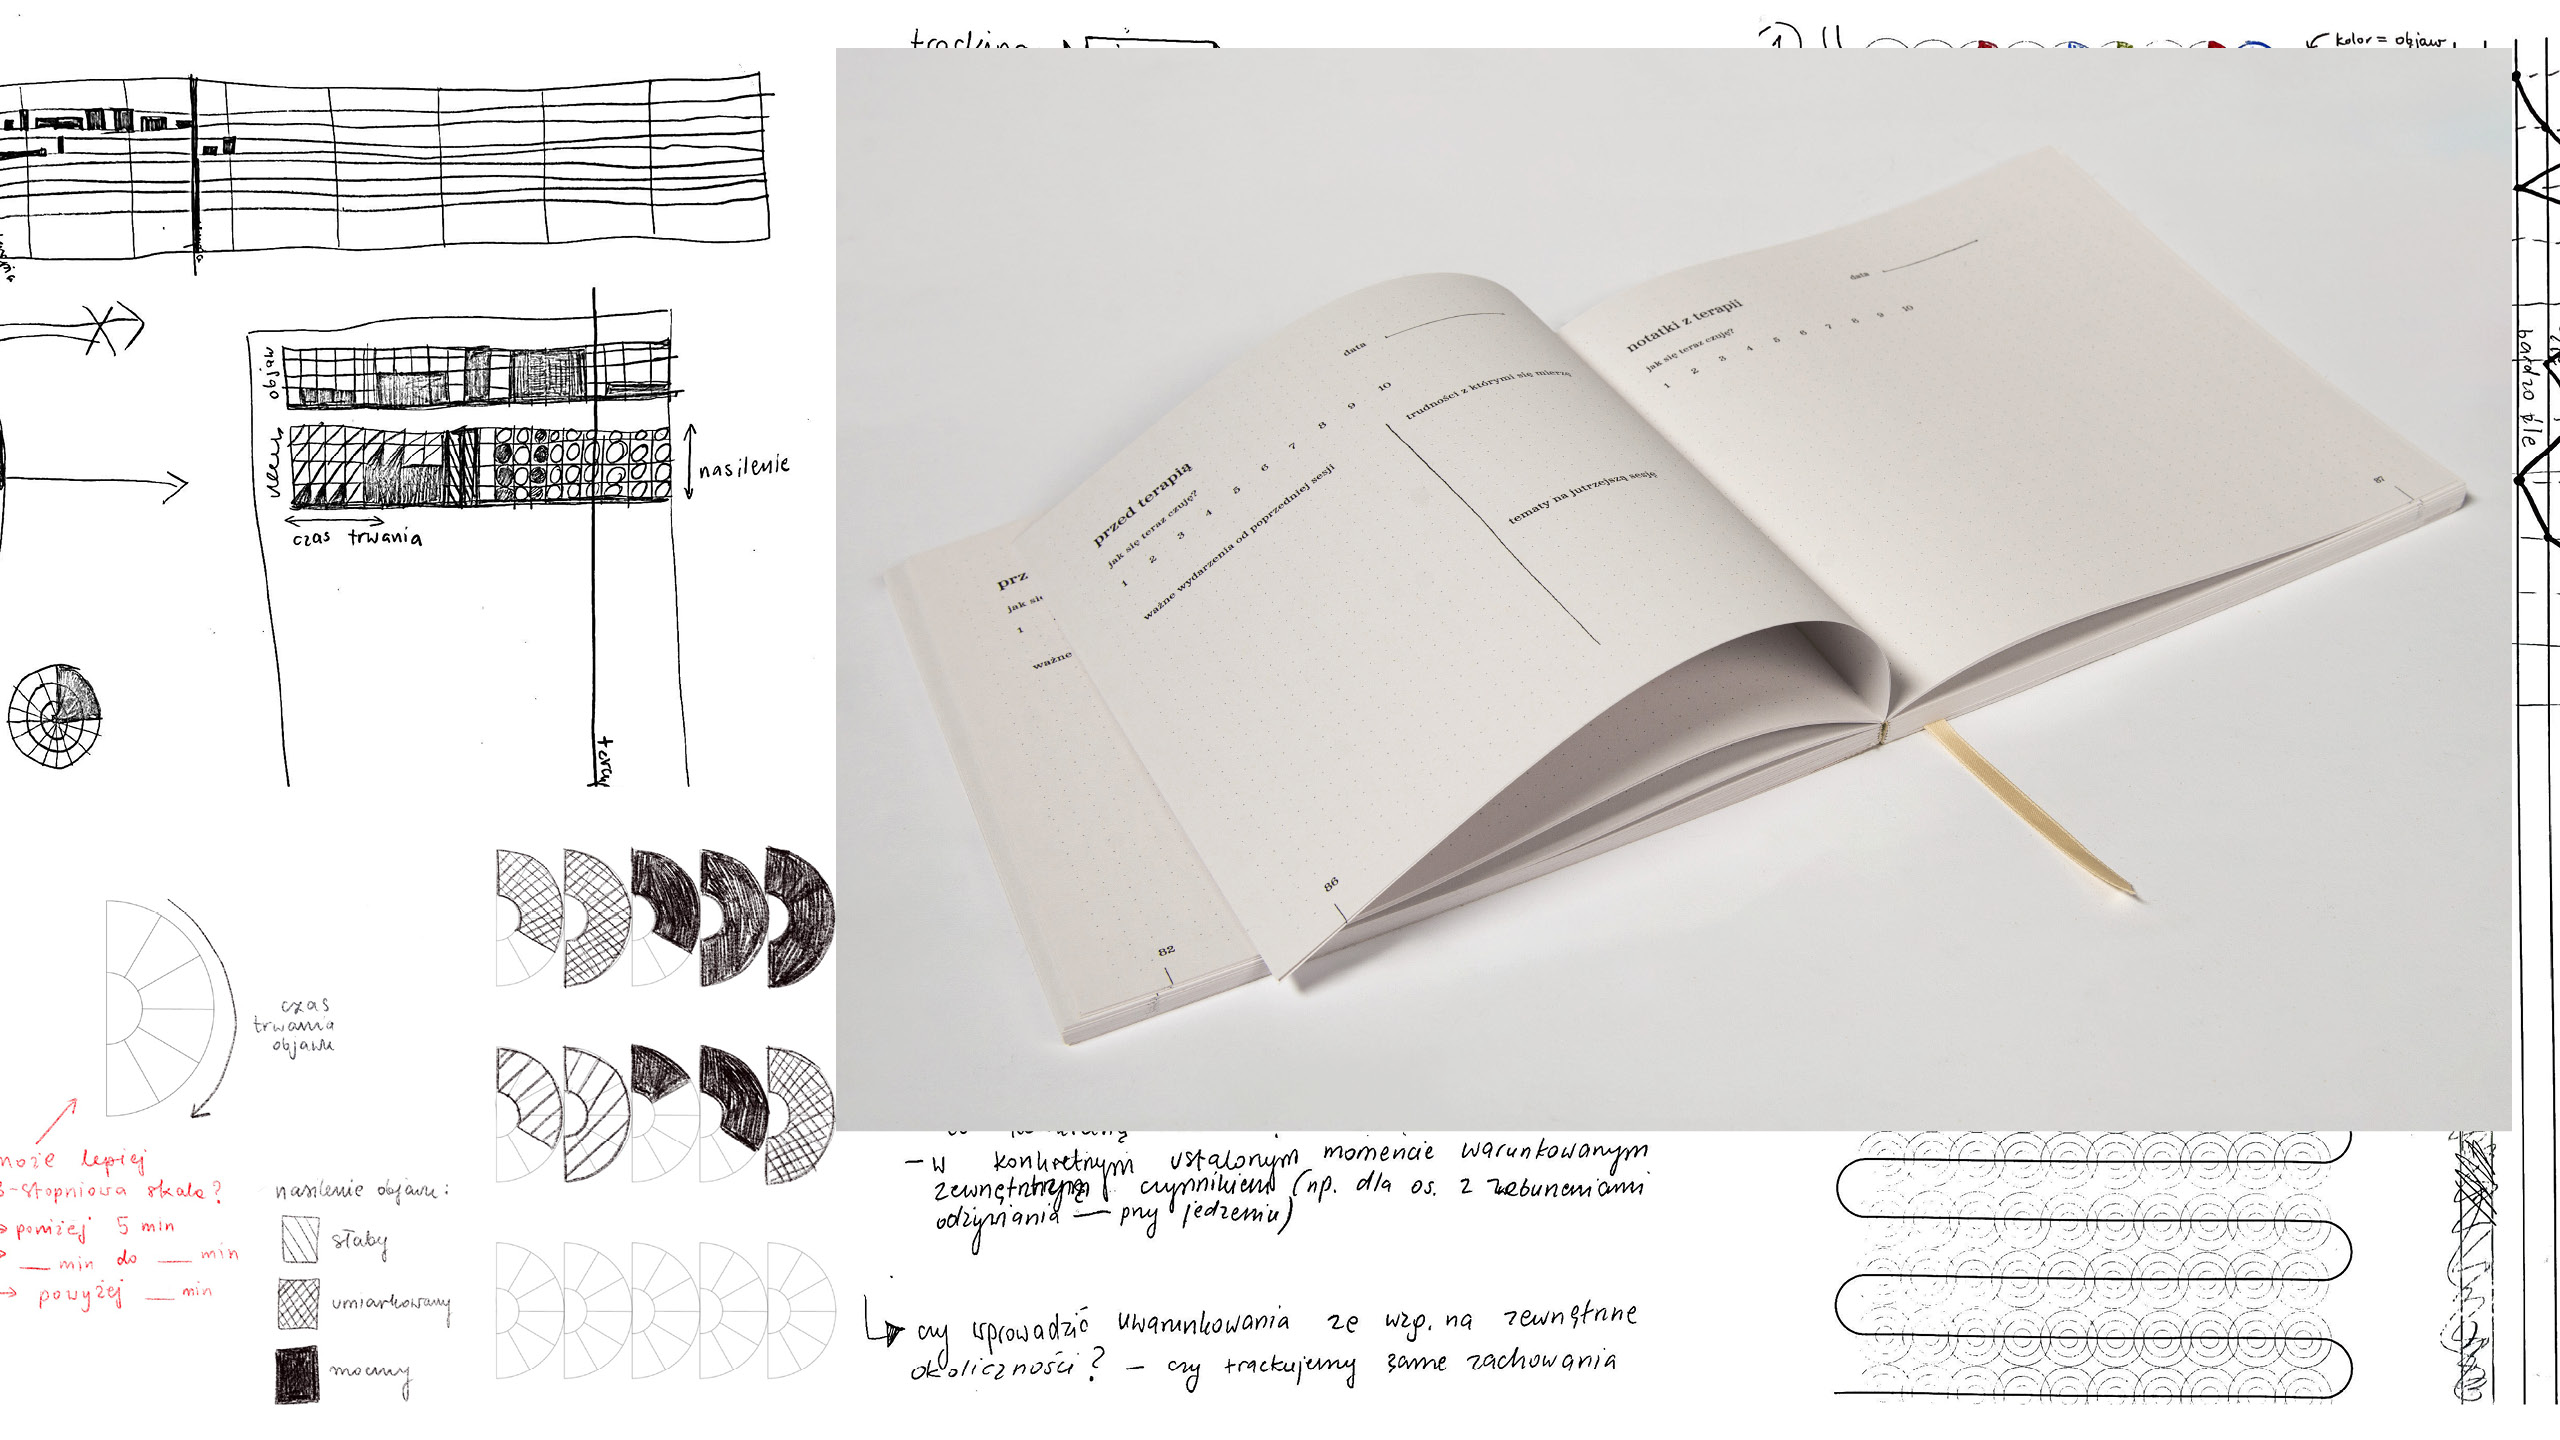 tracking
kolor = objaw
objaw
nasilenie
czas trwania
teraz
bardzo źle
czas
trwania
objawu
może lepiej
3-stopniowa skala?
→ poniżej 5 min
→ __ min do __ min
→ powyżej __ min
nasilenie objawu:
słaby
umiarkowany
mocny
prz
jak się
1
ważne
82
data
przed terapią
jak się teraz czuję?
1 2 3 4 5 6 7 8 9 10
ważne wydarzenia od poprzedniej sesji
trudności z którymi się mierzę
tematy na jutrzejszą sesję
86
data
notatki z terapii
jak się teraz czuję?
1 2 3 4 5 6 7 8 9 10
87
– w konkretnym ustalonym momencie warunkowanym
zewnętrznym czynnikiem (np. dla os. z zaburzeniami
odżywiania — przy jedzeniu)
czy wprowadzić uwarunkowania ze wzg. na zewnętrzne
okoliczności? – czy trackujemy same zachowania